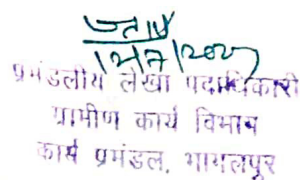 प्रमंडलीय लेखा पदाधिकारी
ग्रामीण कार्य विभाग
कार्य प्रमंडल, भागलपुर